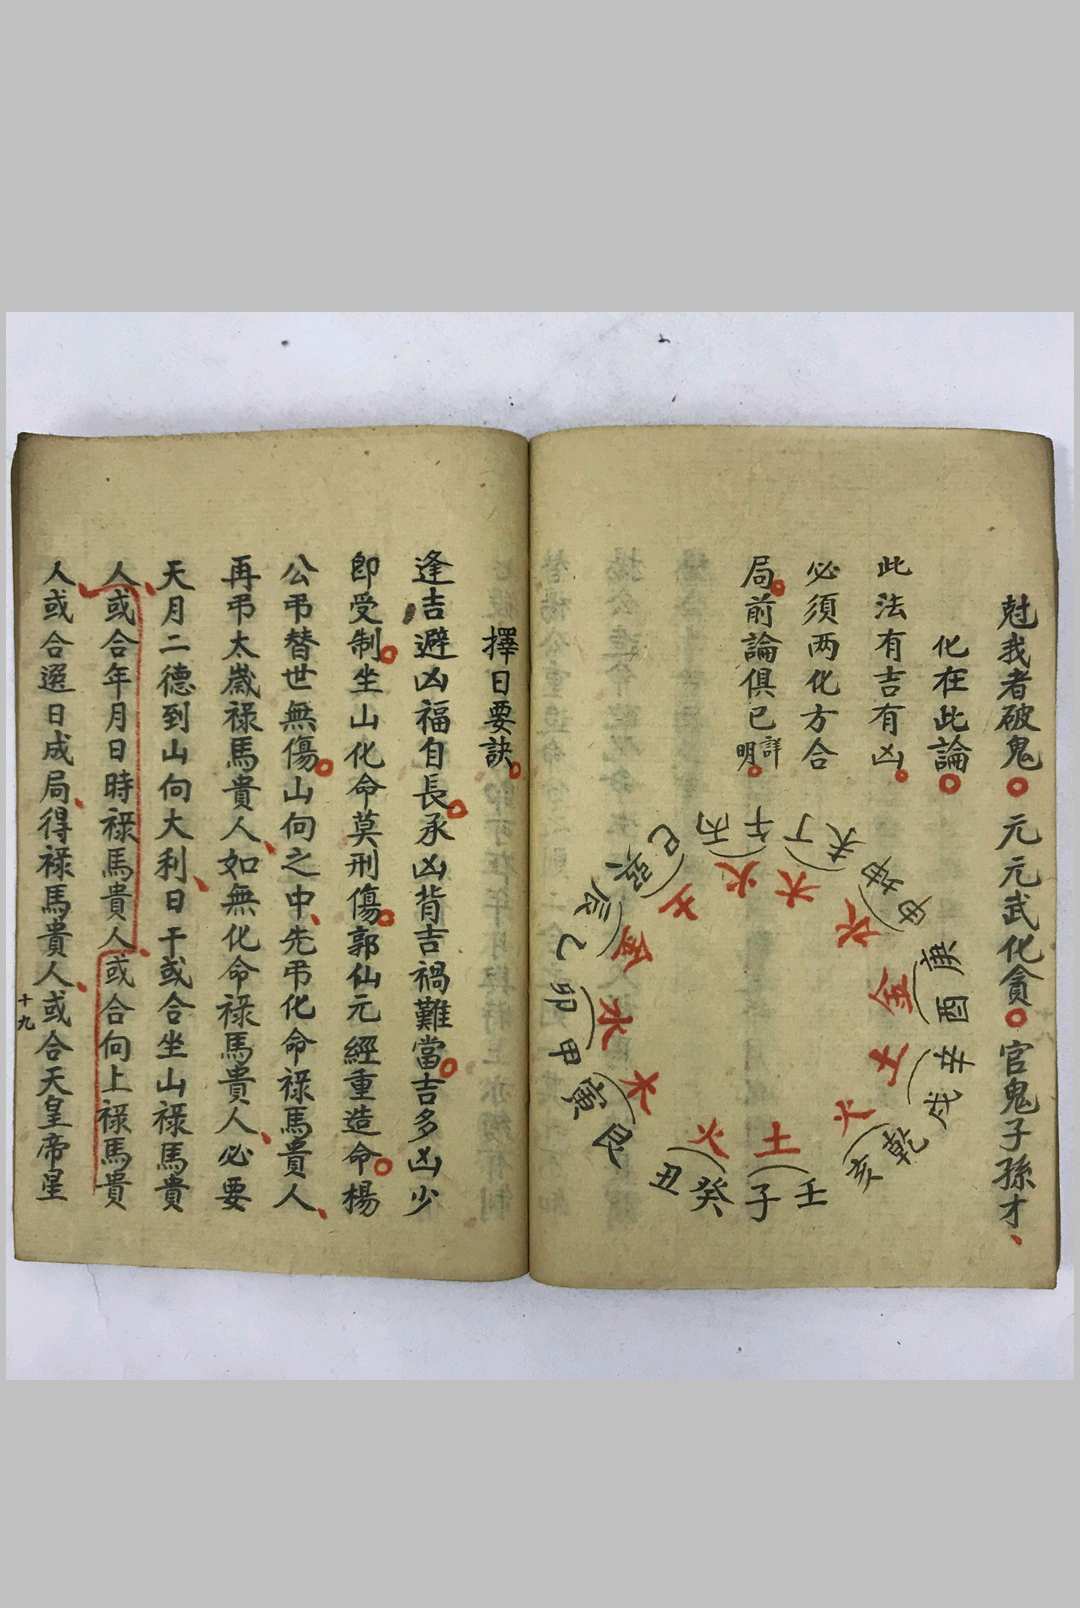 尅我者破鬼元元武化貪官鬼子孫才
化在此論
此法有吉有凶
必須两化方合
局前論俱已詳明
壬子
癸丑
艮寅
甲卯
乙辰
巽巳
丙午
丁未
坤申
庚酉
辛戌
乾亥
土
火
木
水
金
土
火
木
水
金
土
火
擇日要訣
逢吉避凶福自長承凶背吉禍難當吉多凶少
即受制坐山化命莫刑傷郭仙元經重造命楊
公弔替世無傷山向之中先弔化命祿馬貴人
再弔太歲祿馬貴人如無化命祿馬貴人必要
天月二德到山向大利日干或合坐山祿馬貴
人或合年月日時祿馬貴人或合向上祿馬貴
人或合選日成局得祿馬貴人或合天皇帝星
十九